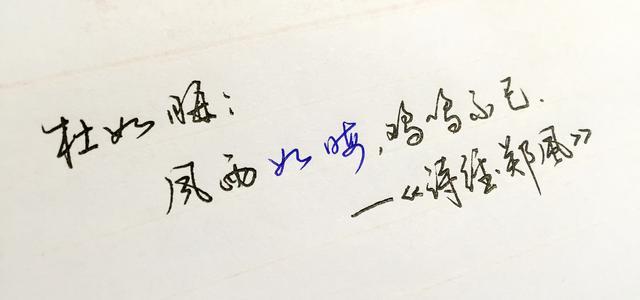 杜如晦：
風雨如晦，鸡鸣不已.
—《诗经·郑風》